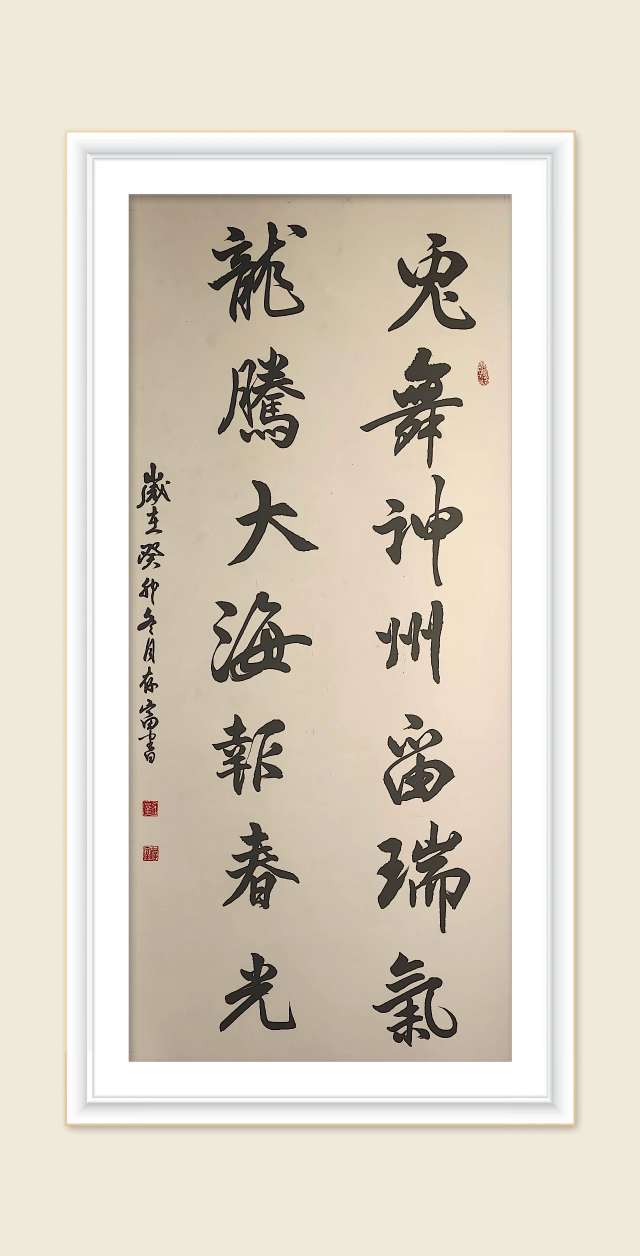 兎舞神州留瑞氣
龍騰大海報春光
歲在癸卯冬月存富書